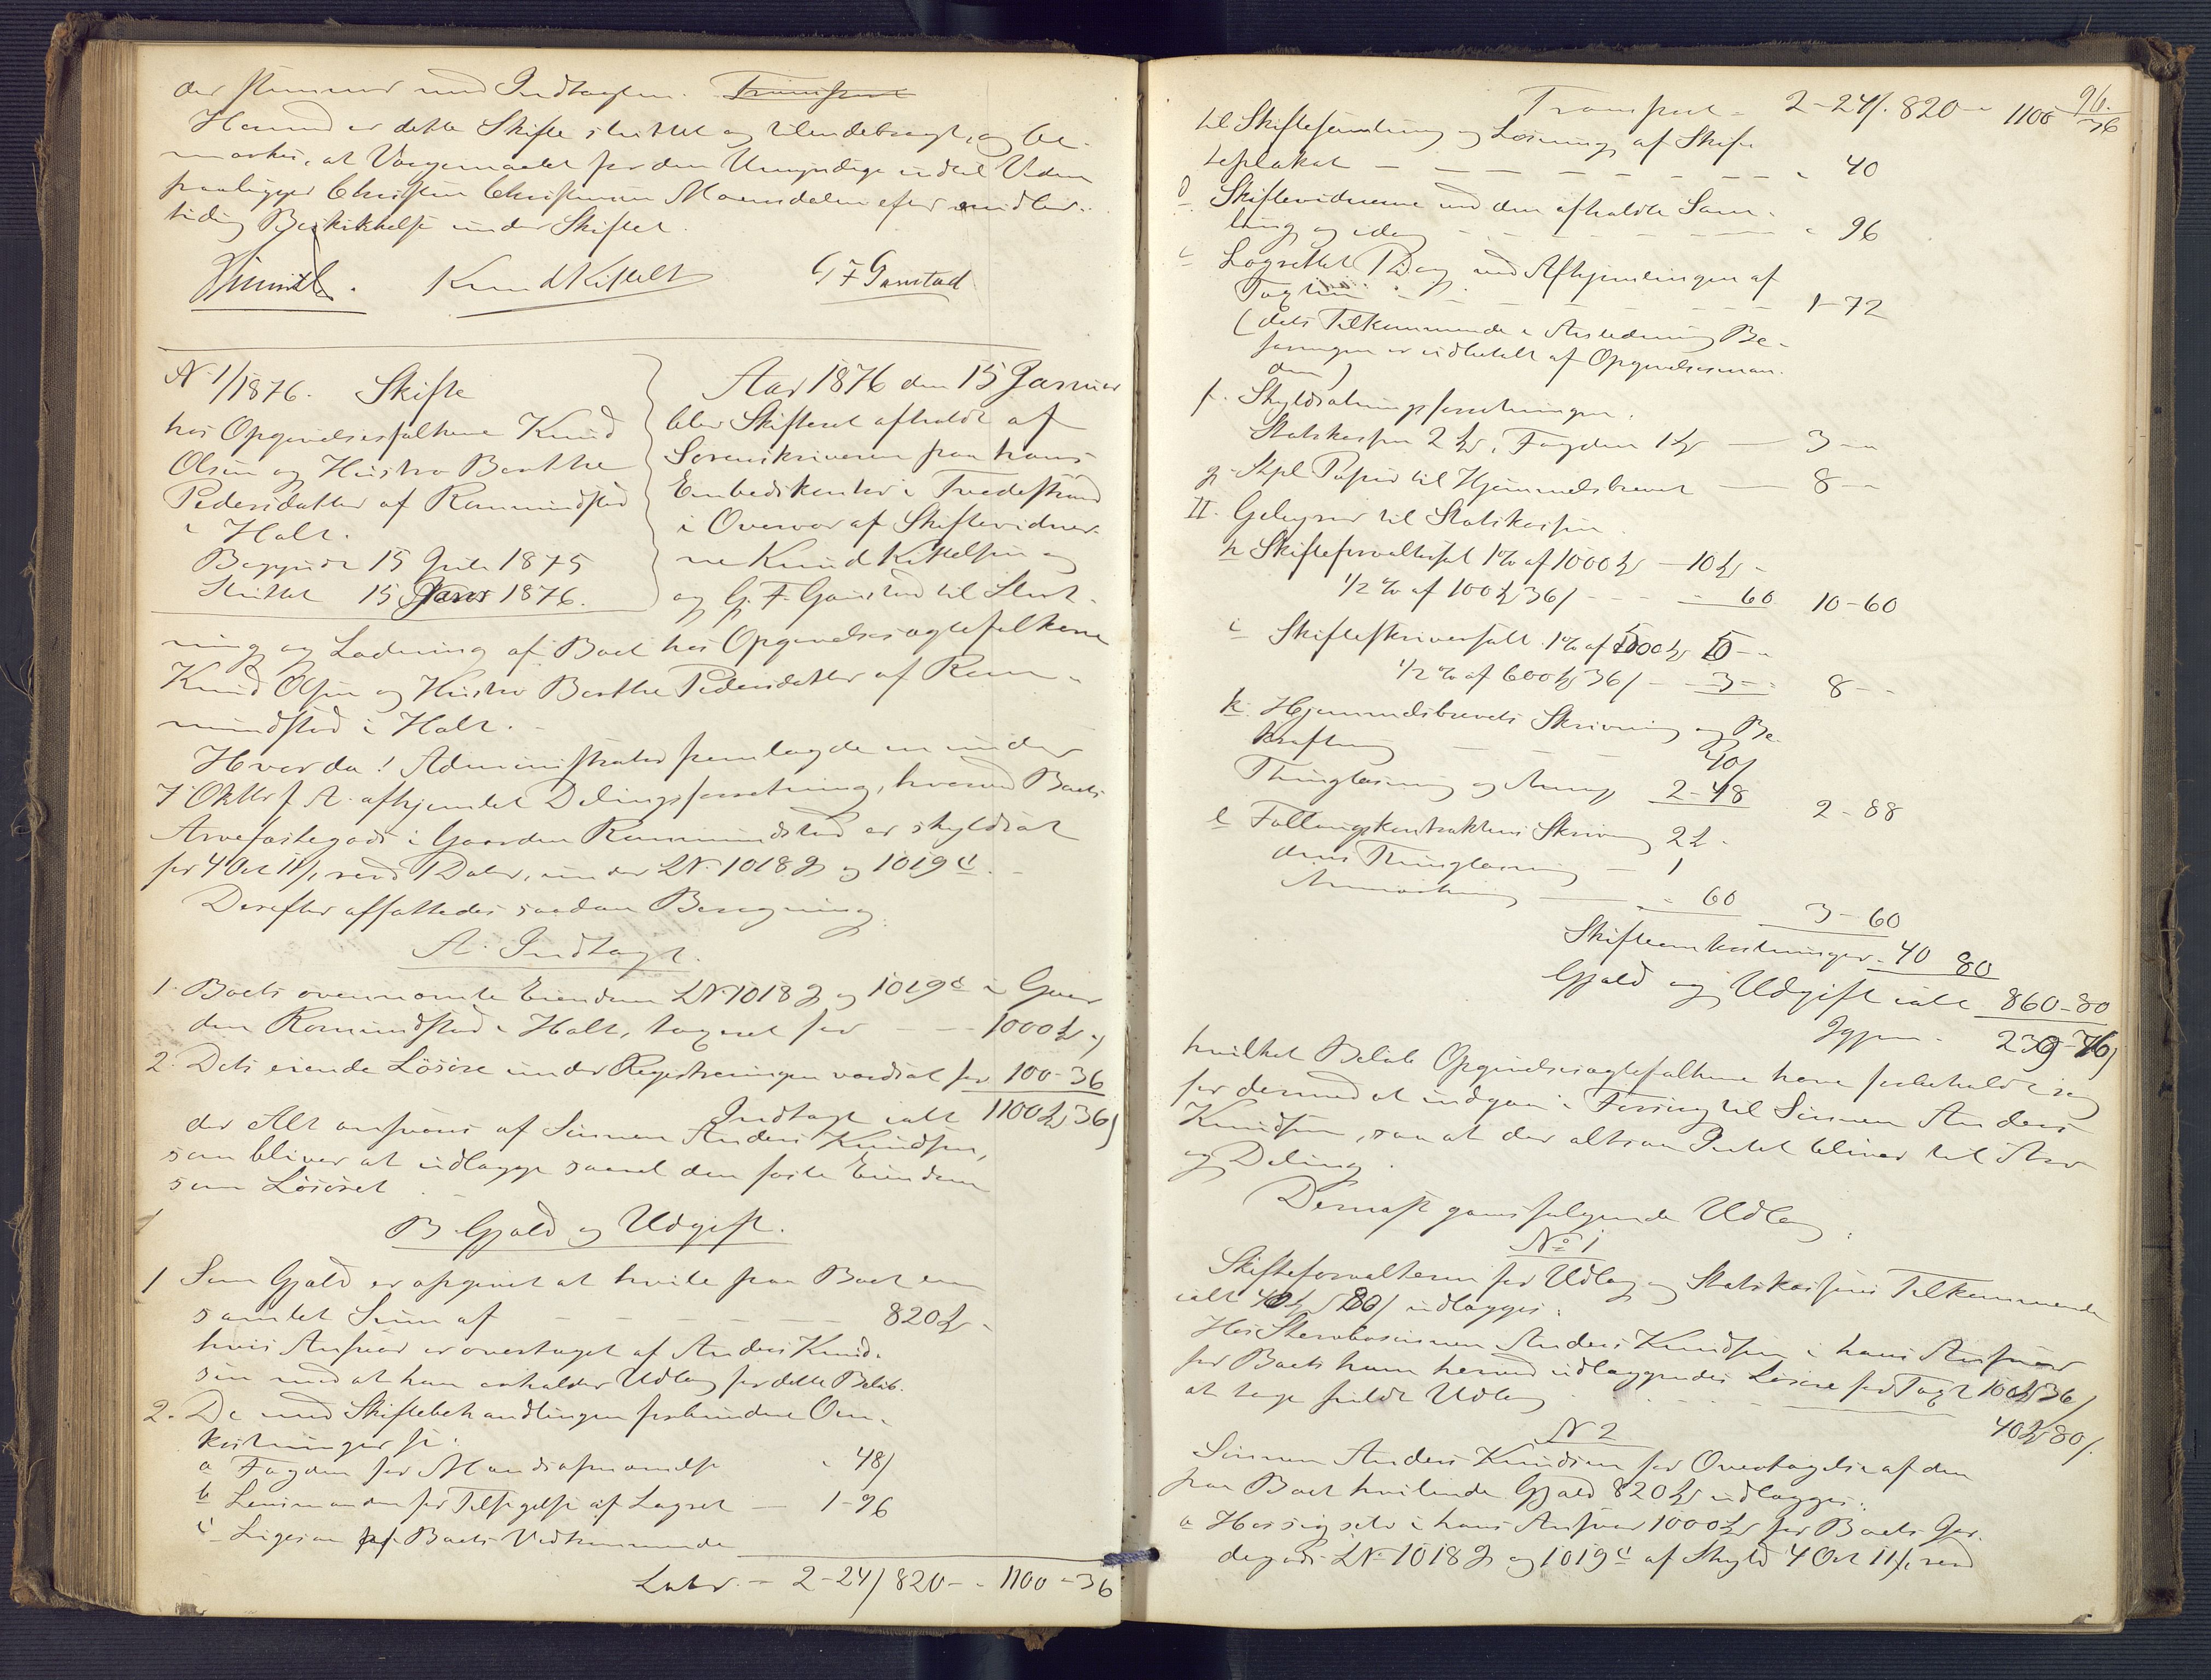 der stemmer med Indtægten. Transport
Hermed er dette Skifte sluttet og tilendebragt, og be-
mærkes, at Værgemaalet for den Umyndige indtil Viden
paaligger Christen Christensen Moensdalen efter midler-
tidig Beskikkelse under Skiftet.
Knud Kittelsen G F Ganstad
N 1/1876. Skifte
hos Opgivelsesfolkene Knud
Olsen og Hustro Berthe
Pedersdatter af Rommundstad
i Holt.
Begyndt 15 Juli 1875
Sluttet 15 Janr 1876.
Aar 1876 den 15 Januar
blev Skifteret afholdt af
Sorenskriveren paa hans
Embedskontor i Tvedestrand
i Overvær af Skiftevidner-
ne Knud Kittelsen og
og G. F. Ganstad til Slut-
ning og Lodning af Boet hos Opgivelsesægtefolkene
Knud Olsen og Hustro Berthe Pedersdatter af Rom-
mundstad i Holt.
Hvorda! Administrator fremlagde en under
7 Oktbr f. A. afhjemlet Delingsforretning, hvorved Boets
Arvefæstegods i Gaarden Rommundstad er skyldsat
for 4 Ort 11 ß, red Daler, under LN. 1018 g og 1019 c.
Derefter affattedes saadan Beregning:
A. Indtægt.
1. Boets ovennævnte Eiendom LN 1018 g og 1019 c i Gaar
den Romundstad i Holt, taxeret for — 1000 Kr "
2. Dets eiende Løsøre under Registreringen værdsat for 100-36
Indtægt ialt 1100 Kr 36
der Alt ansvares af Sønnen Anders Knudsen,
som bliver at udlægge saavel den faste Eiendom
som Løsøret.
B Gjæld og Udgift.
1 Som Gjæld er opgivet at hvile paa Boet en
samlet Sum af — — — — — 820 Kr
hvis Ansvar er overtaget af Anders Knud-
sen mod at han erholder Udlæg for dette Beløb.
2. De med Skiftebehandlingen forbundne Om-
kostninger er:
a Fogden for Mandsopnævnelse " 48
b Lensmanden for Tilsigelse af Lagret — 1-96
c Ligesaa for Boets Vedkommende
Later. — 2-24 820- " 1100-36
96.
Transport - 2-24. 820- 1100 36
til Skiftesamling og Læsning af Skif-
teplakat — — — — — — " 40
d Skiftevidnerne ved den afholdte Sam-
ling og idag — — — — — " 96
e Lagrettet 1 Dag ved Afhjemlingen af
Taxten — — — — — 1-72
(dets Tilkommende i Anledning Be-
faringen er udbetalt af Opgivelsesman-
den)
f. Skyldsætningsforretningen.
Statskassen 2 Kr, Fogden 1 Kr — 3-"
g. Stpl. Papir til Hjemmelsbrevet — 8-"
II. Gebyrer til Statskassen
h Skifteforvaltersal 1% af 1000 Kr — 10 Kr -
1/2 % af 100 Kr 36 - - - 60 10-60
i Skifteskriversalt 1% af 500 Kr 5 - "
1/2 % af 600 Kr 36 - - 3 - - 8 - -
k. Hjemmelsbrevets Skrivning og Be-
kræftning 40
Thinglæsning og Anmp 2-48 2-88
l Føllaugskontraktens Skrivn 2 Kr -
dens Thinglæsning — 1
Anmærkning — " 60 3-60
Skifteomkostninger. 40 80
Gjæld og Udgift ialt 860-80
Igjen - 239-76
hvilket Beløb Opgivelsesægtefolkene have forbeholdt sig
for dermed at indgaa i Føring til Sønnen Anders
Knudsen, saa at der altsaa Intet bliver til Arv
og Deling.
Dernæst gaves følgende Udlæg:
No 1
Skifteforvalteren for Udlæg og Statskassens Tilkommende
ialt 40 Kr 80 udlægges:
Hos Stervbosønnen Anders Knudsen i hans Ansvar
for Boets ham herved udlæggendes Løsøre for Taxt 100 Kr 36
at tage fuldt Udlæg - - - - 40 Kr 80.
N 2
Sønnen Anders Knudsen for Overtagelse af den
paa Boet hvilende Gjæld 820 Kr udlægges:
a Hos sig selv i hans Ansvar 1000 Kr for Boets Jor-
degods LN 1018 g og 1019 c af Skyld 4 Ort 11 ß, red